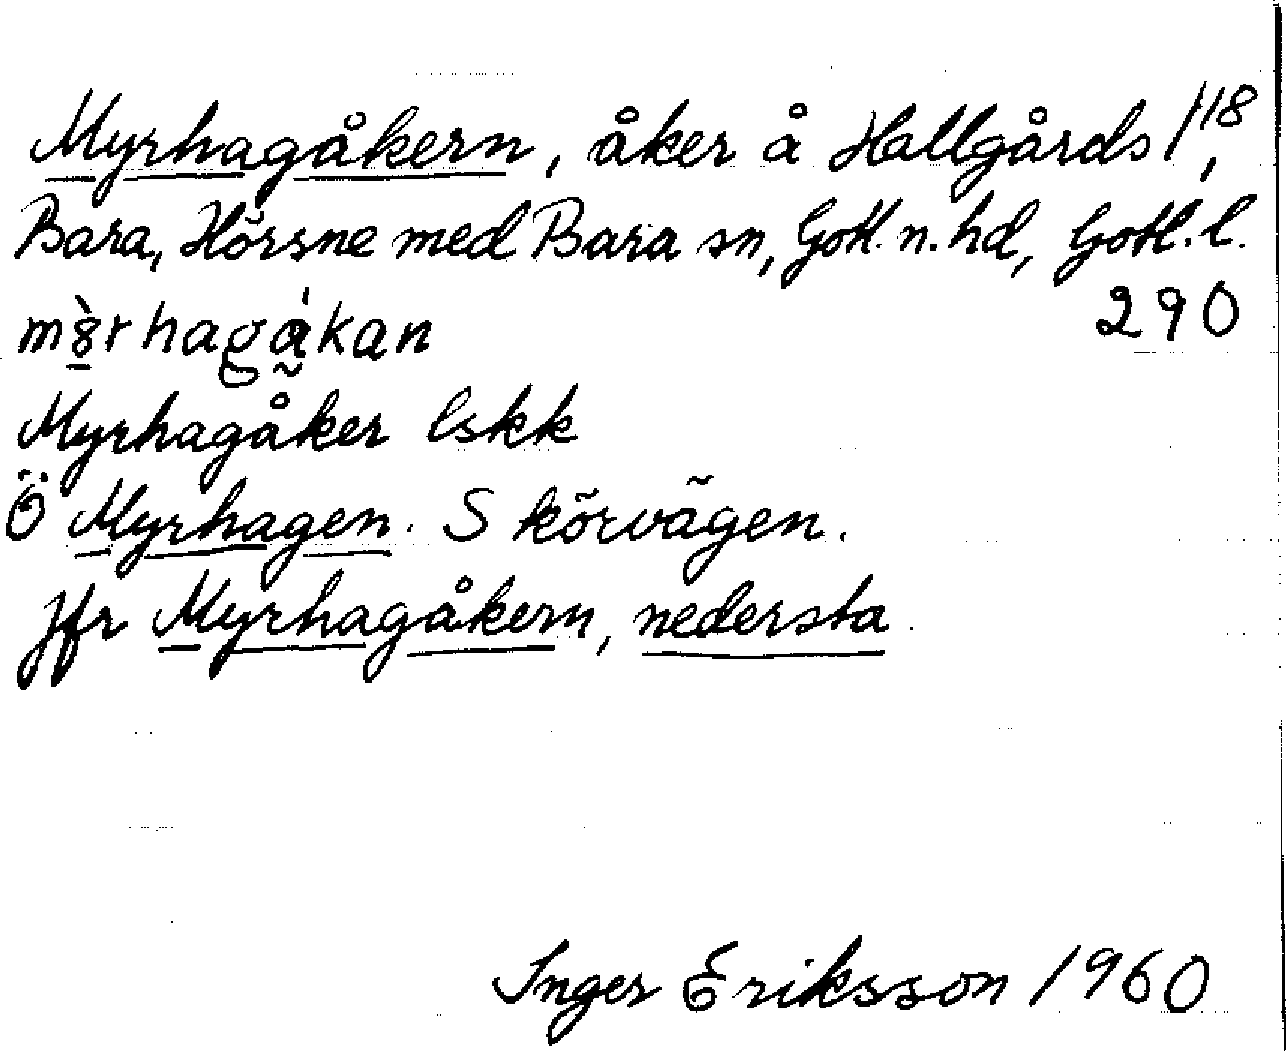 Myrhagåkern, åker å Hallgårds 1¹⁸,
Bara, Hörsne med Bara sn, Gotl. n. hd, Gotl. l.
290
Myrhagåker lskk
Ö Myrhagen. S körvägen.
Jfr Myrhagåkern, nedersta.
Inger Eriksson 1960